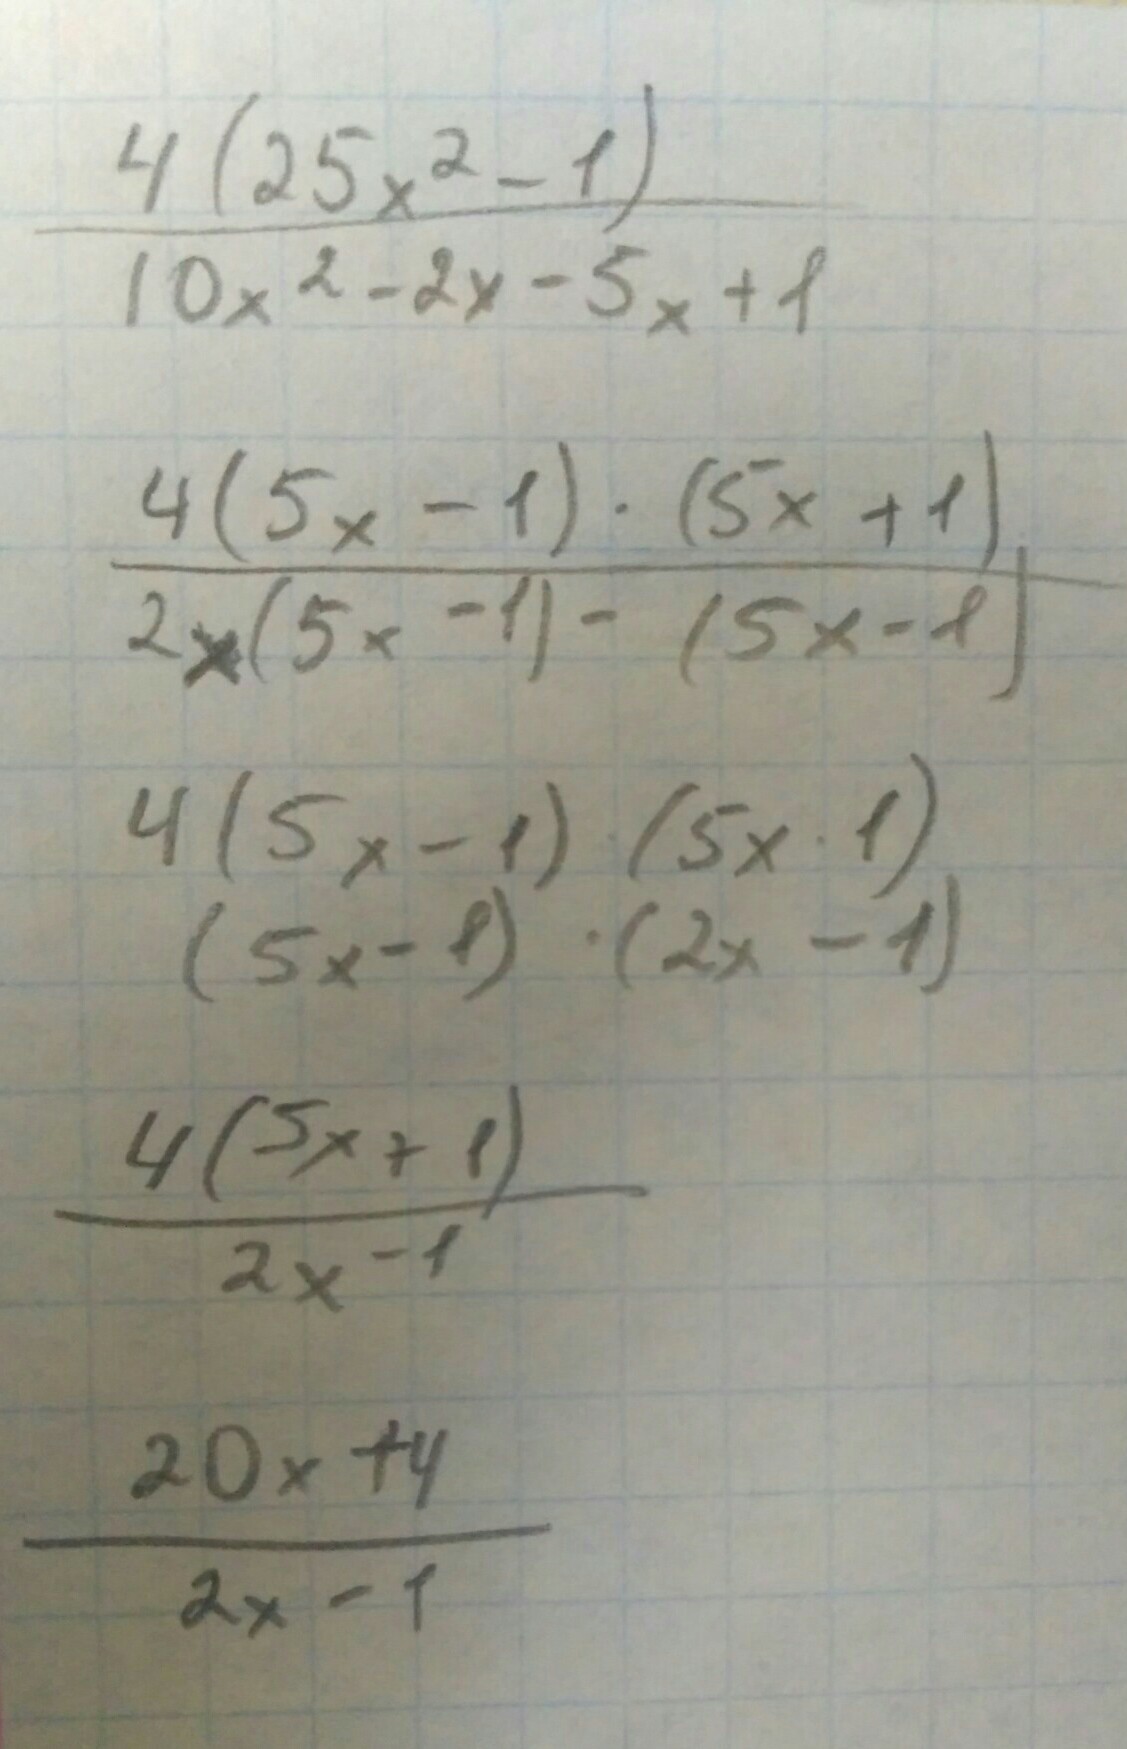 4(25x²-1)
10x²-2x-5x+1
4(5x-1)·(5x+1)
2x(5x-1)-(5x-1)
4(5x-1)·(5x·1)
(5x-1)·(2x-1)
4(5x+1)
2x-1
20x+4
2x-1